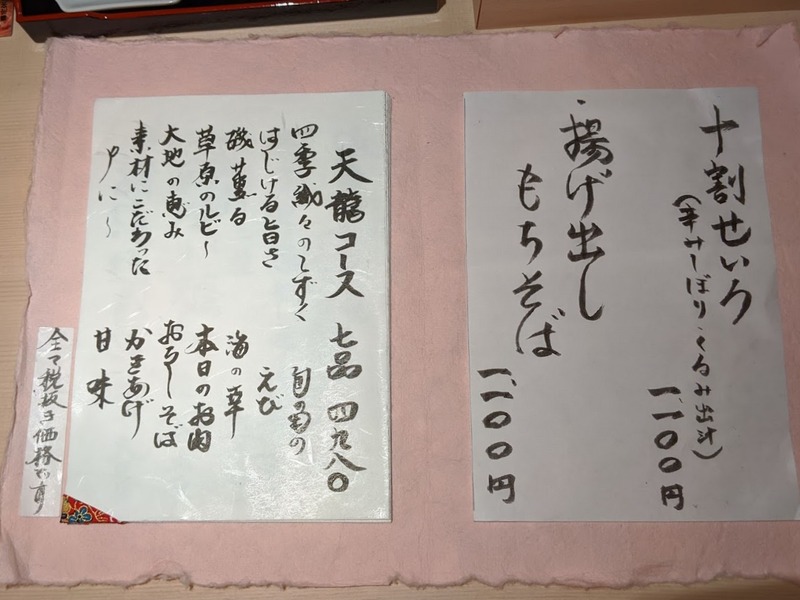 十割せいろ
(辛みしぼり・くるみ出汁)
一、一〇〇円
・揚げ出し
もちそば
一、一〇〇円
天龍コース 七品 四九八〇
四季織々のしずく 旬の菊の
はじける旨さ えび
磯薫る 海の草
草原のルビー 本日のお肉
大地の恵み おろしそば
素材にこだわった かきあげ
甘味
全て税抜き価格です